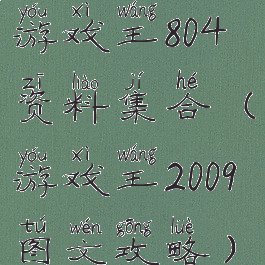 yóu xì wáng
游戏王804
zī liào jí hé
资料集合(
yóu xì wáng
游戏王2009
tú wén gōng lüè
图文攻略)